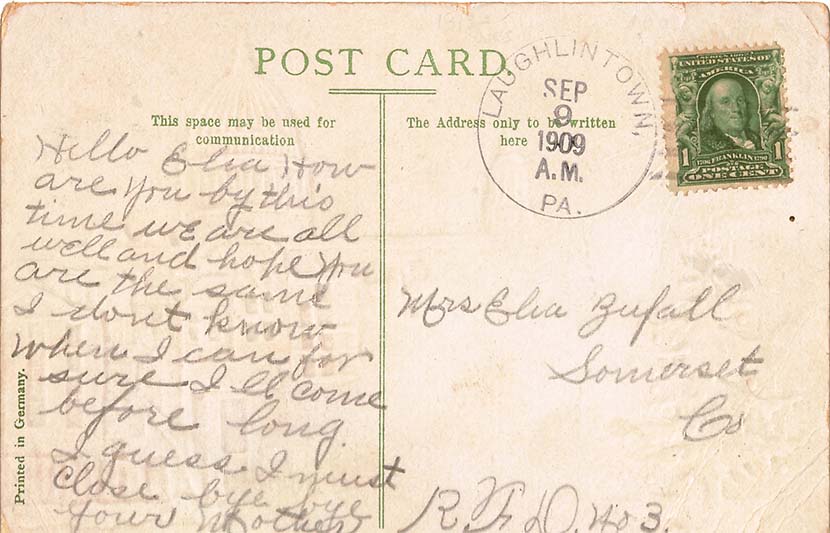 POST CARD
This space may be used for
communication
The Address only to be written
here
LAUGHLINTOWN,
SEP
9
1909
A.M.
PA.
SERIES 1902
UNITED STATES OF
AMERICA
1 1
1706 FRANKLIN 1790
POSTAGE
ONE CENT
Hello Elia How
are you by this
time we are all
well and hope you
are the same
I dont know
when I can for
sure I ll come
before long.
I guess I must
close bye bye
your Mother
Mrs Elia Zufall
Somerset
Co
R.F.D. No 3.
Printed in Germany.